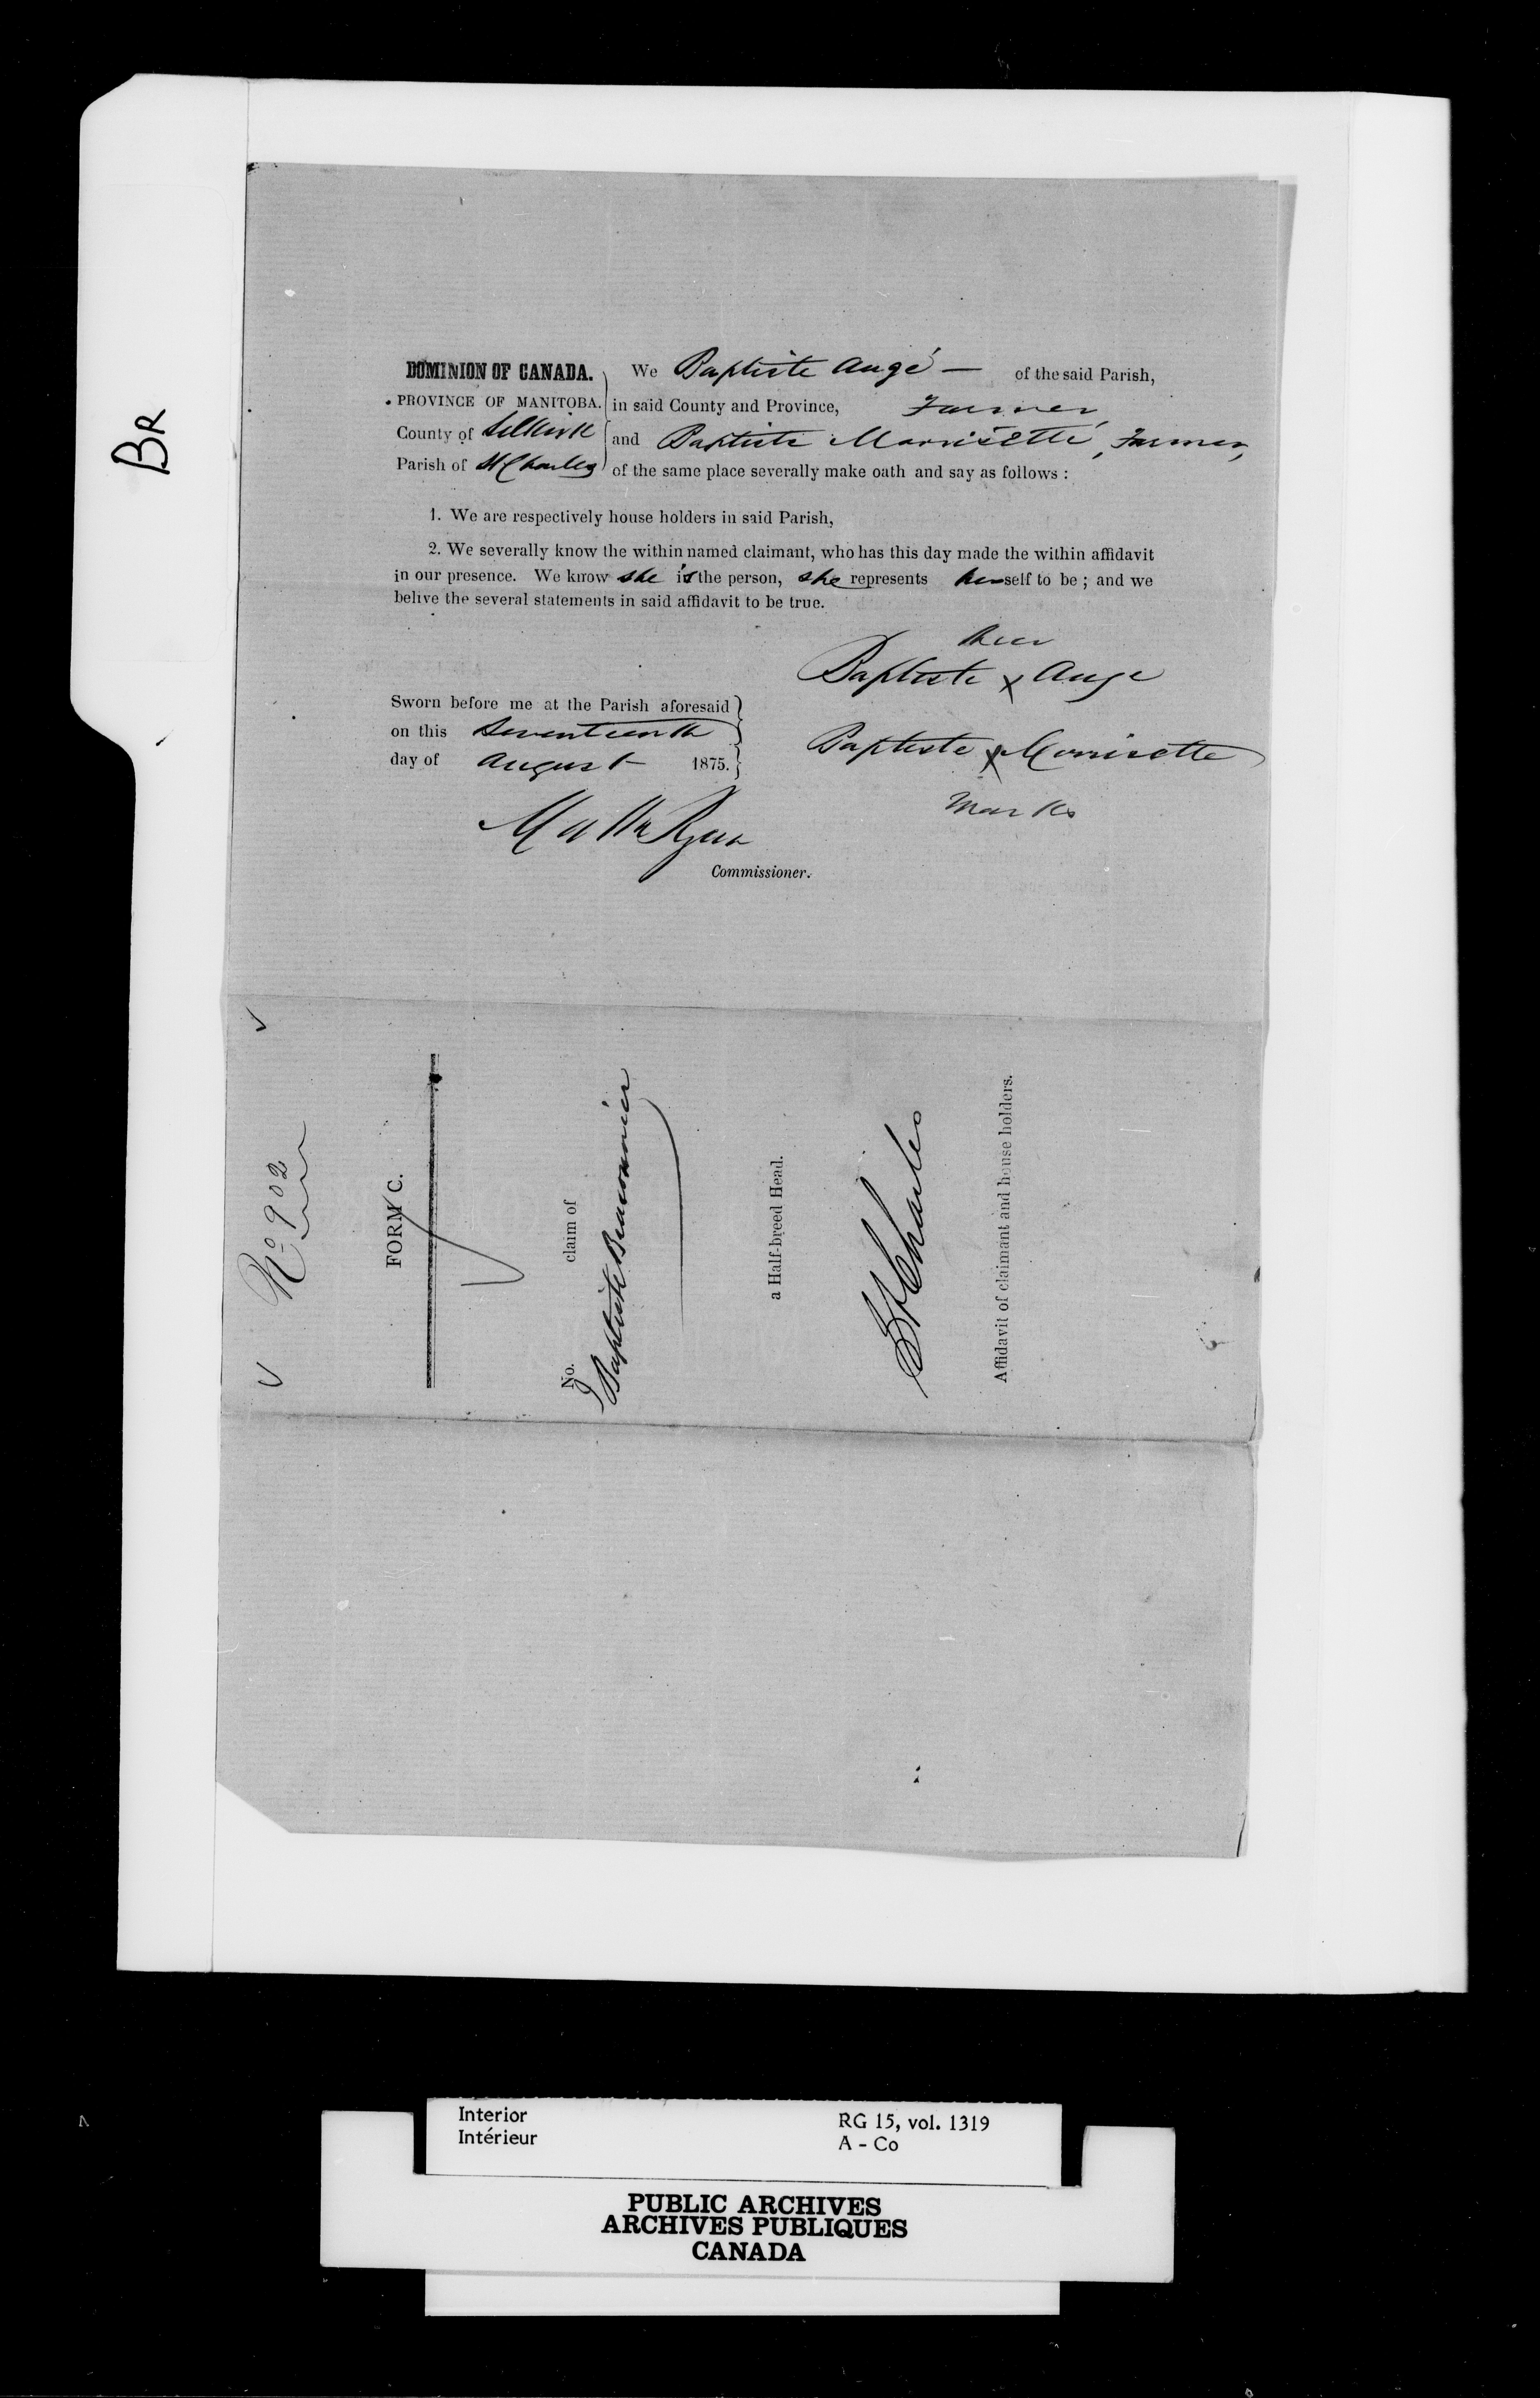 BR
DOMINION OF CANADA.
PROVINCE OF MANITOBA.
County of Selkirk
Parish of St Charles
We Baptiste Augé — of the said Parish,
in said County and Province, Farmer
and Baptiste Morrisette, Farmer,
of the same place severally make oath and say as follows :
1. We are respectively house holders in said Parish,
2. We severally know the within named claimant, who has this day made the within affidavit
in our presence. We know she is the person, she represents herself to be ; and we
belive the several statements in said affidavit to be true.
their
Baptiste x Auge
Sworn before me at the Parish aforesaid
on this Seventeenth
day of August 1875.
Baptiste x Morrisette
Marks
Matth Ryan
Commissioner.
No 902
FORM C.
No. claim of
Baptiste
a Half-breed Head.
St Charles
Affidavit of claimant and house holders.
Interior
Intérieur
RG 15, vol. 1319
A - Co
PUBLIC ARCHIVES
ARCHIVES PUBLIQUES
CANADA